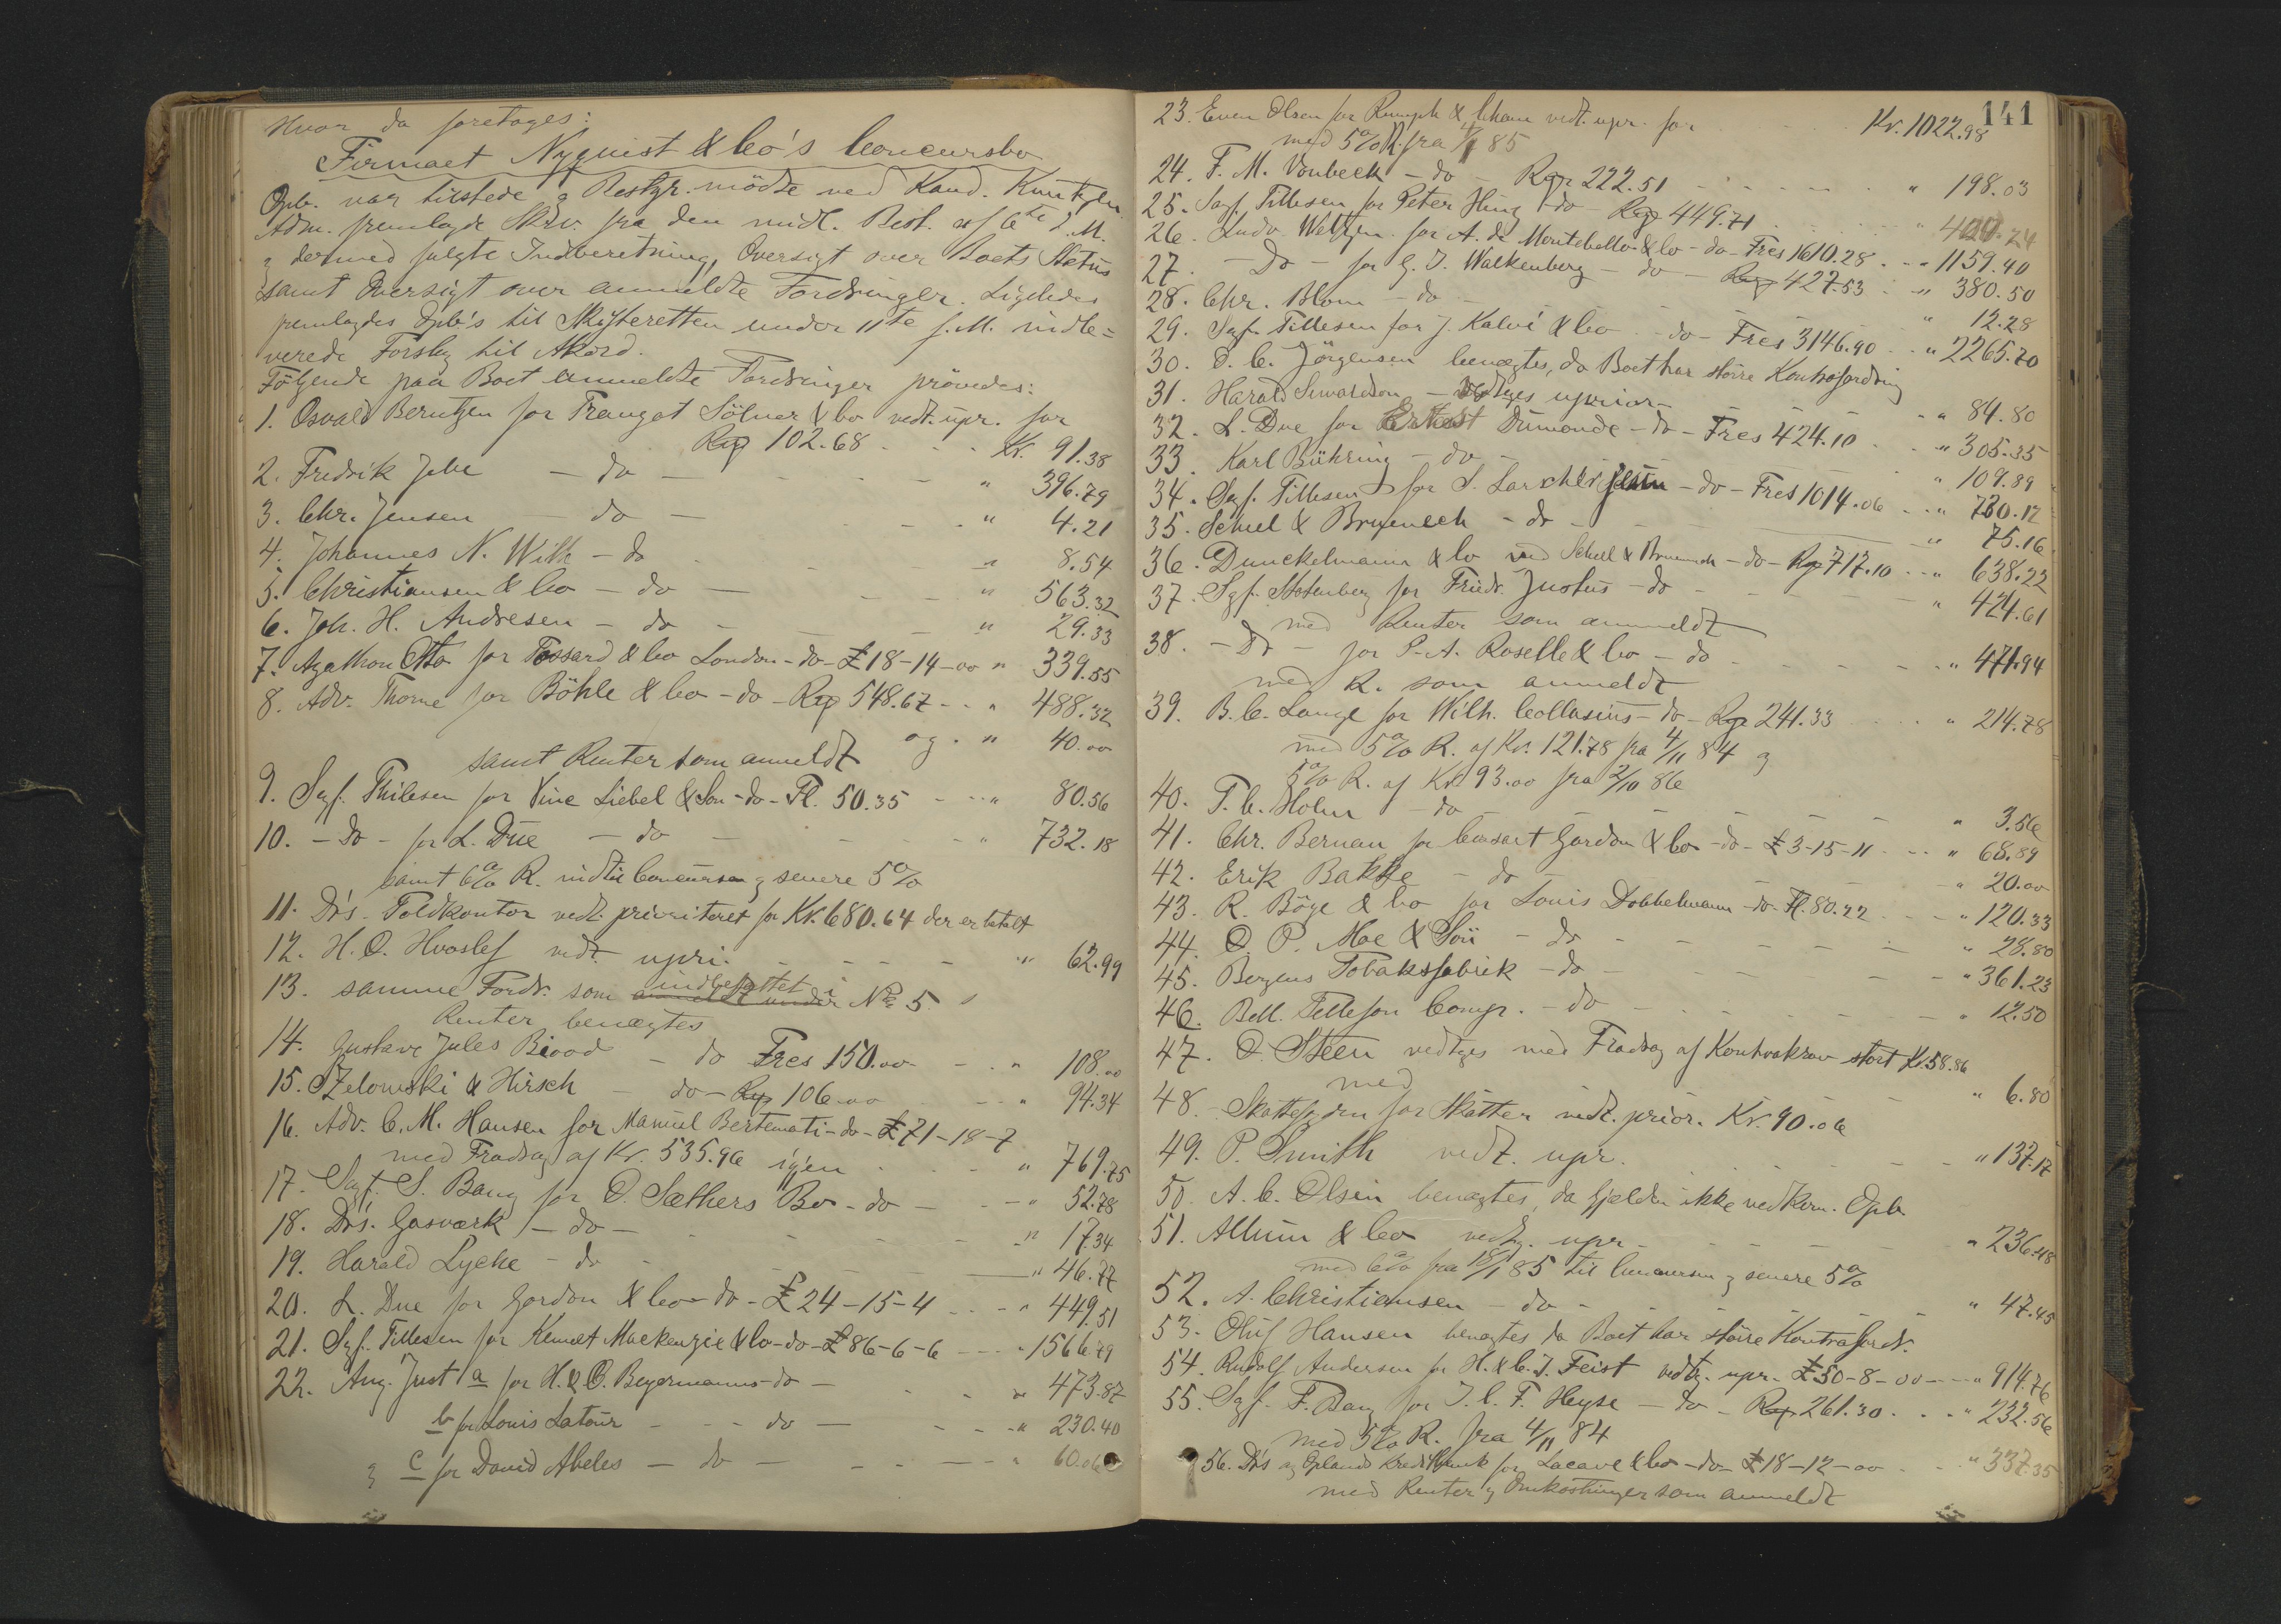 Hvor da foretages:
Firmaet Nyquist & Co's Concursbo
Opb. var tilstede og Bestyr. mödte ved Kand.
Adm. fremlagde Skr. fra den midl. Best. af 6te d. M.
og dermed fulgte Indberetning, Oversigt over Boets Status
samt Oversigt over anmeldte Fordringer. Ligeledes
fremlagdes Opb's til Skifteretten under 11te s. M. indle=
verede Forslag til Akord.
Følgende paa Boet anmeldte Fordringer prövedes:
1. Osvald Berntzen for Traugot Sölner & Co vedt. upr. for
Rm 102.68 - - - Kr. 91.38
2. Fredrik Jebe - do - " 396.79
3. Chr. Jensen - do - " 4.21
4. Johannes N. With - do - " 8.54
5. Christiansen & Co - do - " 563.32
6. Joh. H. Andresen - do - " 29.33
7. Agathon Otto for Tossard & Co London - do - £ 18-14-00 " 339.55
8. Adv. Thorne for Böhle & Co - do - Rm 548.67 - - " 488.32
og - " 40.00
samt Renter som anmeldt
9. Sagf. Tillesen for Vine Liebel & Son - do - Fl. 50.35 - - " 80.56
10. - do - for L. Due - do - " 732.18
samt 6% R. indtil Concursen og senere 5%
11. Drs. Toldkontor vedt. prioriteret for Kr. 680.64 der er betalt
12. H. O. Hvoslef vedt. upri. - " 62.99
13. samme Fordr. som anmeldt under indbefattet i No 5
Renter benægtes
14. Gustave Jules Biood - do Frcs 150.00 - " 108.00
15. Szelowski & Hirsch - do - Rm 106.00 - " 94.34
16. Adv. C. M. Hansen for Manuel Bertemati - do - £ 71-18-7
med Fradrag af Kr. 535.96 igjen - " 769.75
17. Sagf. S. Bang for O. Sæthers Bo - do - " 52.78
18. Drs. Gasværk - do - " 17.34
19. Harald Lyche - do - " 46.77
20. L. Due for Gordon & Co - do - £ 24-15-4 - " 449.51
21. Sagf. Tillesen for Kenneth Mackenzie & Co - do - £ 86-6-6 - " 1566.79
22. Aug. Just a for H. & O. Beyermanns - do - " 473.87
b for Louis Latour - do - " 230.40
og c for David Abeles - do - " 60.06
141
23. Even Olsen for Rumpk & vedt. upr. for Kr. 1022.98
med 5% R. fra 85
24. F. M. Vonbeck - do - Rm 222.51 - " 198.03
25. Sagf. Tillesen for Peter Hing - do - Rm 449.71 - " 400.24
26. Ludv. Weltzin for A. de Montebello & Co - do - Frcs 1610.28 - " 1159.40
27. - Do - for G. J. Walkenberg - do - Rm 427.53 - " 380.50
28. Chr. Blom - do - " 12.28
29. Sagf. Tillesen for J. Kalvé & Co - do - Frcs 3146.90 - " 2265.70
30. D. C. Jörgensen benægtes, da Boet har större Kontrafordring
31. Harald Sewardson - vedtages uprior - " 84.80
32. L. Due for Ernest Dumonde - do - Frcs 424.10 - " 305.35
33. Karl Bühring - do - " 109.89
34. Sagf. Tillesen for S. Larcher - do - Frcs 1014.06 - " 730.12
35. Scheel & Bruenech - do - " 75.16
36. Dunckelmann & Co ved Scheel & Bruenech - do - Rm 717.10 - " 638.22
37. Sagf. Stotenberg for Friedr. Justus - do - " 424.61
med Renter som anmeldt
38. - Do - for P. A. Roselle & Co - do - " 471.94
med R. som anmeldt
39. B. C. Lange for Wilh. Collasius - do - Rm 241.33 - " 214.78
med 5% R. af Kr. 121.78 fra 4/11 84 og
5% R. af Kr. 93.00 fra 2/10 86
40. T. C. Holm - do - " 3.56
41. Chr. Bernau for Gordon & Co - do - £ 3-15-11 - " 68.89
42. Erik Bakke - do - " 20.00
43. R. Böge & Co for Louis Dobbelmann - do - Fl. 80.22 - " 120.33
44. O. P. Moe & Sön - do - " 28.80
45. Bergens Tobaksfabrik - do - " 361.23
46. Bell. Telefon Comp. - do - " 12.50
47. O. Steen vedtages med Fradrag af Kontrakrav stort Kr. 58.86
med - " 6.80
48. Skattefogden for Skatter vedt. prior. Kr. 90.06
49. P. Smith vedt. upr. - " 137.17
50. A. C. Olsen benægtes, da Gjælden ikke vedkom. Opb.
51. Allum & Co vedtg. upr. - " 236.48
med 6% fra 18/1 85 til Concursen og senere 5%
52. A. Christiansen - do - " 47.45
53. Oluf Hansen benægtes da Boet har större Kontrafordr.
54. Rudolf Andersen for H. & C. J. Feist vedtg. upr. £ 50-8-00 - " 914.76
55. Sagf. F. Bang for J. C. F. Heyse - do - Rm 261.30 - " 232.56
med 5% R. fra 4/11 84
56. Drs og Oplands Kreditbank for Lacave & Co - do - £ 18-12-00 - " 337.35
med Renter og Omkostninger som anmeldt